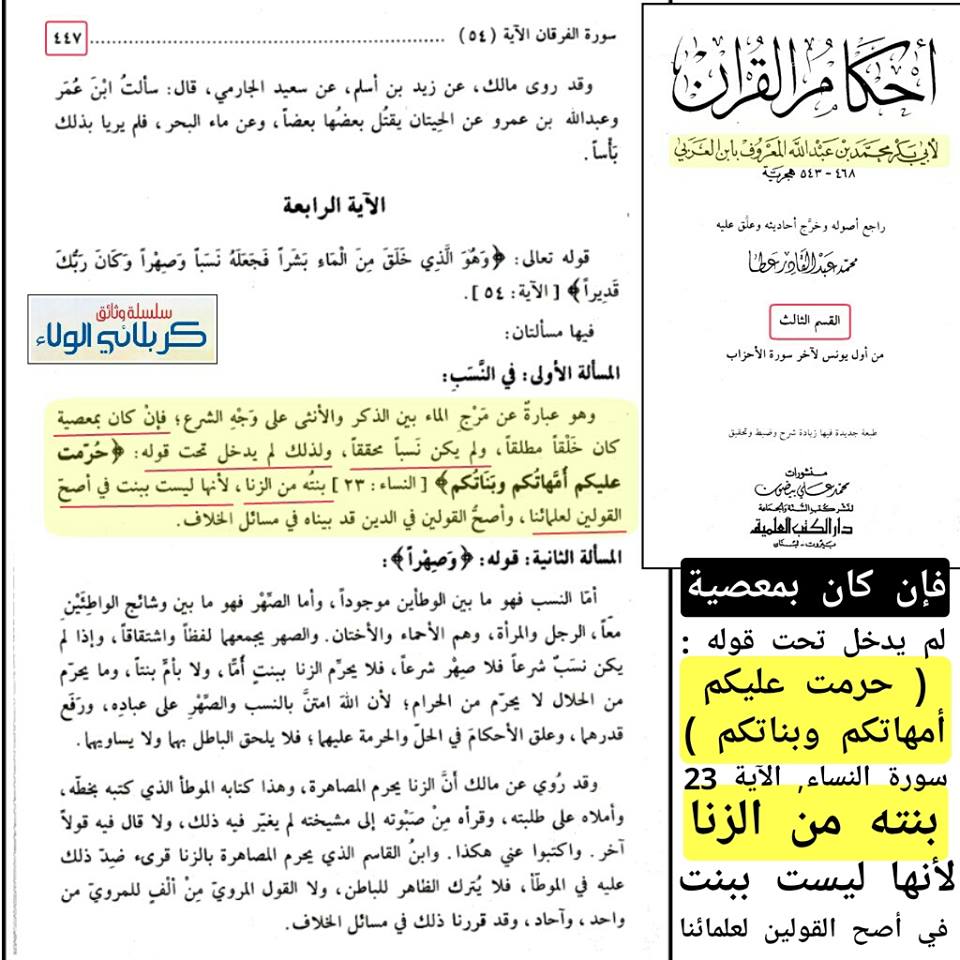 سورة الفرقان الآية (٥٤) ........................................ ٤٤٧
وقد روى مالك، عن زيد بن أسلم، عن سعيد الجارمي، قال: سألتُ ابْنَ عُمَر
وعبدالله بن عمرو عن الحِيتان يقتُل بعضُها بعضاً، وعن ماء البحر، فلم يريا بذلك
بَأْساً.
الآية الرابعة
قوله تعالى: ﴿وَهُوَ الَّذِي خَلَقَ مِنَ الْمَاءِ بَشَراً فَجَعَلَهُ نَسَباً وَصِهْراً وَكَانَ رَبُّكَ
قَدِيراً﴾ [الآية: ٥٤].
فيها مسألتان:
المسألة الأولى: في النَّسَبِ:
وهو عبارةٌ عن مَرْجِ الماء بين الذكر والأنثى على وَجْهِ الشرع؛ فإنْ كان بمعصية
كان خَلْقاً مطلقاً، ولم يكن نَسباً محققاً، ولذلك لم يدخل تحت قوله: ﴿حُرِّمت
عليكم أُمَّهاتُكم وبَنَاتُكم﴾ [النساء: ٢٣] بنتُه من الزنا، لأنها ليست ببنت في أصحّ
القولين لعلمائنا، وأصحُّ القولين في الدين قد بيناه في مسائل الخلاف.
المسألة الثانية: قوله: ﴿وَصِهْراً﴾:
أمّا النسب فهو ما بين الوطأين موجوداً، وأما الصِّهْر فهو ما بين وشائج الواطِئَيْنِ
معاً، الرجل والمرأة، وهم الأحماء والأختان. والصهر يجمعهما لفظاً واشتقاقاً، وإذا لم
يكن نسَبٌ شرعاً فلا صِهْر شرعاً، فلا يحرِّم الزنا ببنتٍ أمًّا، ولا بأمٍّ بنتاً، وما يحرم
من الحلال لا يحرّم من الحرام؛ لأن اللهَ امتنَّ بالنسب والصِّهْرِ على عباده، ورَفَع
قدرهما، وعلق الأحكامَ في الحلّ والحرمة عليهما؛ فلا يلحق الباطل بهما ولا يساويهما.
وقد رُوي عن مالك أنَّ الزنا يحرم المصاهرة، وهذا كتابه الموطأ الذي كتبه بخطّه،
وأملاه على طلبته، وقرأه مِنْ صَبْوته إلى مشيخته لم يغيّر فيه ذلك، ولا قال فيه قولاً
آخر. واكتبوا عني هكذا. وابنُ القاسم الذي يحرم المصاهرة بالزنا قرىء ضِدّ ذلك
عليه في الموطّأ، فلا يُترك الظاهر للباطن، ولا القول المرويّ مِنْ ألْفٍ للمرويّ من
واحد، وآحاد، وقد قررنا ذلك في مسائل الخلاف.
سلسلة وثائق
كربلائي الولاء
أحكام القرآن
لأبي بكر محمد بن عبد الله المعروف بابن العربي
٤٦٨ - ٥٤٣ هجرية
راجع أصوله وخرَّج أحاديثه وعلَّق عليه
محمد عبد القادر عطا
القسم الثالث
من أول يونس لآخر سورة الأحزاب
طبعة جديدة فيها زيادة شرح وضبط وتحقيق
منشورات
محمد علي بيضون
لنشر كتب السنة والجماعة
دار الكتب العلمية
بيروت - لبنان
فإن كان بمعصية
لم يدخل تحت قوله :
( حرمت عليكم
أمهاتكم وبناتكم )
سورة النساء, الآية 23
بنته من الزنا
لأنها ليست ببنت
في أصح القولين لعلمائنا